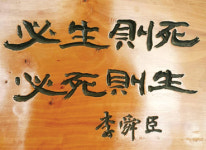 必生則死
必死則生
李舜臣